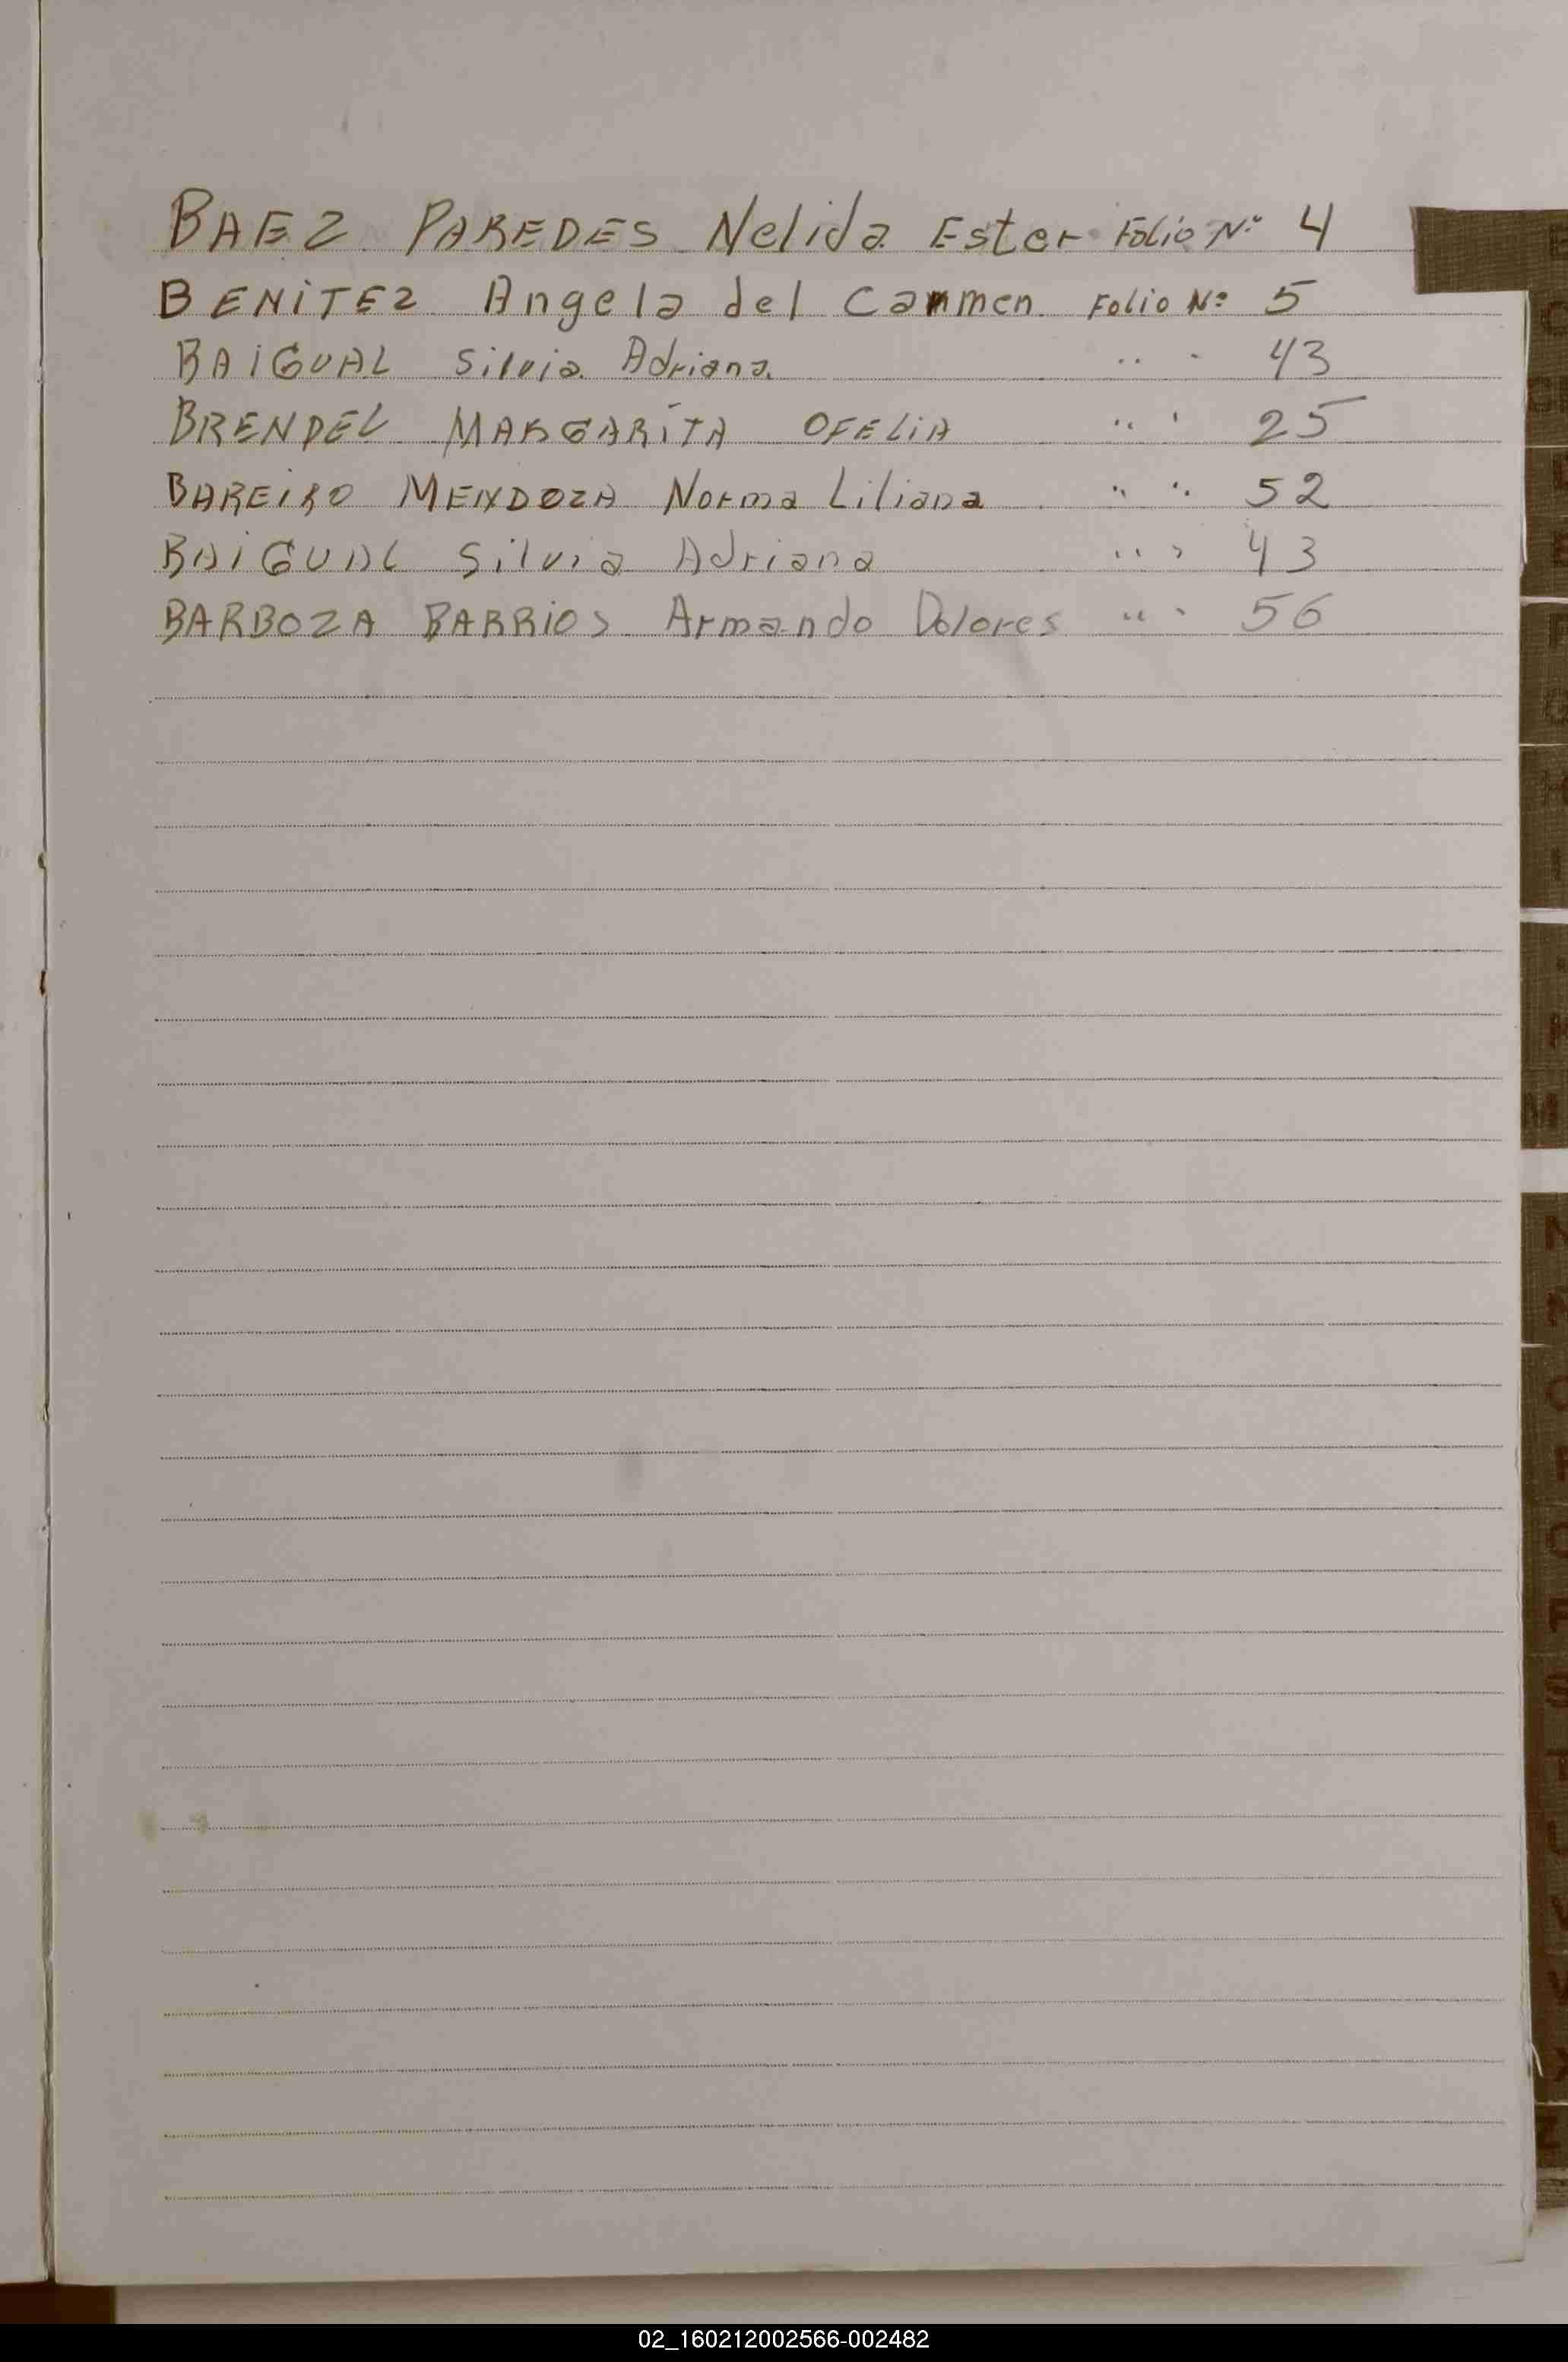 BAEZ PAREDES Nelida Ester Folio Nº 4
BENiTEZ Angela del Carmen Folio Nº 5
BAiGUAL Silvia Adriana " " 43
BRENDEL MARGARiTA OFELiA " " 25
BAREiRO MENDOZA Norma Liliana " " 52
BAiGUAL Silvia Adriana " " 43
BARBOZA BARRiOS Armando Dolores " " 56
02_160212002566-002482